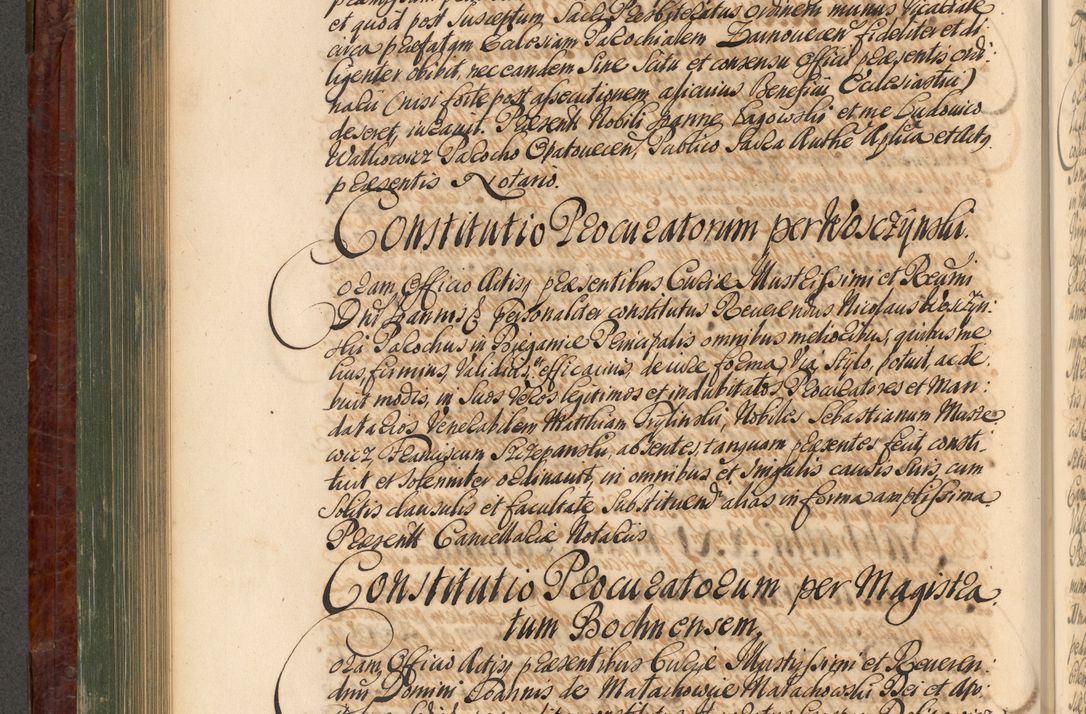 et quod post susceptum Sacri Presbiteratus ordinem munus Vicariale
circa præfatam Ecclesiam Parochialem Zarnovecen fideliter et di:
ligenter obibit, nec eandem sine Scitu et consensu Officii præsentis ordi:
narii (nisi forte post assecutionem alicuius Beneficii Ecclesiastici)
deseret, iuravit. Præsent Nobili Joanne Lagowski et me Ludovico
præsentis Notario.
Constitutio Procuratorum per Kłosczÿnski.
oram Officio Actisq præsentibus Curiæ Illustrissimi et Reverendissimi
Dni Joannis & personaliter constitutus Reverendus Nicolaus Kłosczÿn:
ski Parochus in Bieganice Principalis omnibus melioribus, quibus me
lius, firmius, validius, efficacius, de iure, forma, via, stylo, potuit, ac de:
buit modis, in Suos Veros legitimos et indubitatos Procuratores et Man:
datarios Venerabilem Matthiam Figlinski, Nobiles Sebastianum
Franciscum Szczepanski, absentes, tanquam præsentes fecit, consti:
tuit et solenniter ordinavit, in omnibus et singulis causis suis, cum
solitis clausulis et facultate substituend alias in forma amplissima
Præsentt Cancellariæ Notariis
Constitutio Procuratorum per Magistra
tum Bochnensem,
oram Officio Actisq præsentibus Curiæ Illustrissimi et Reveren:
dni Domini Joannis de Małachowice Małachowski Dei et Apo